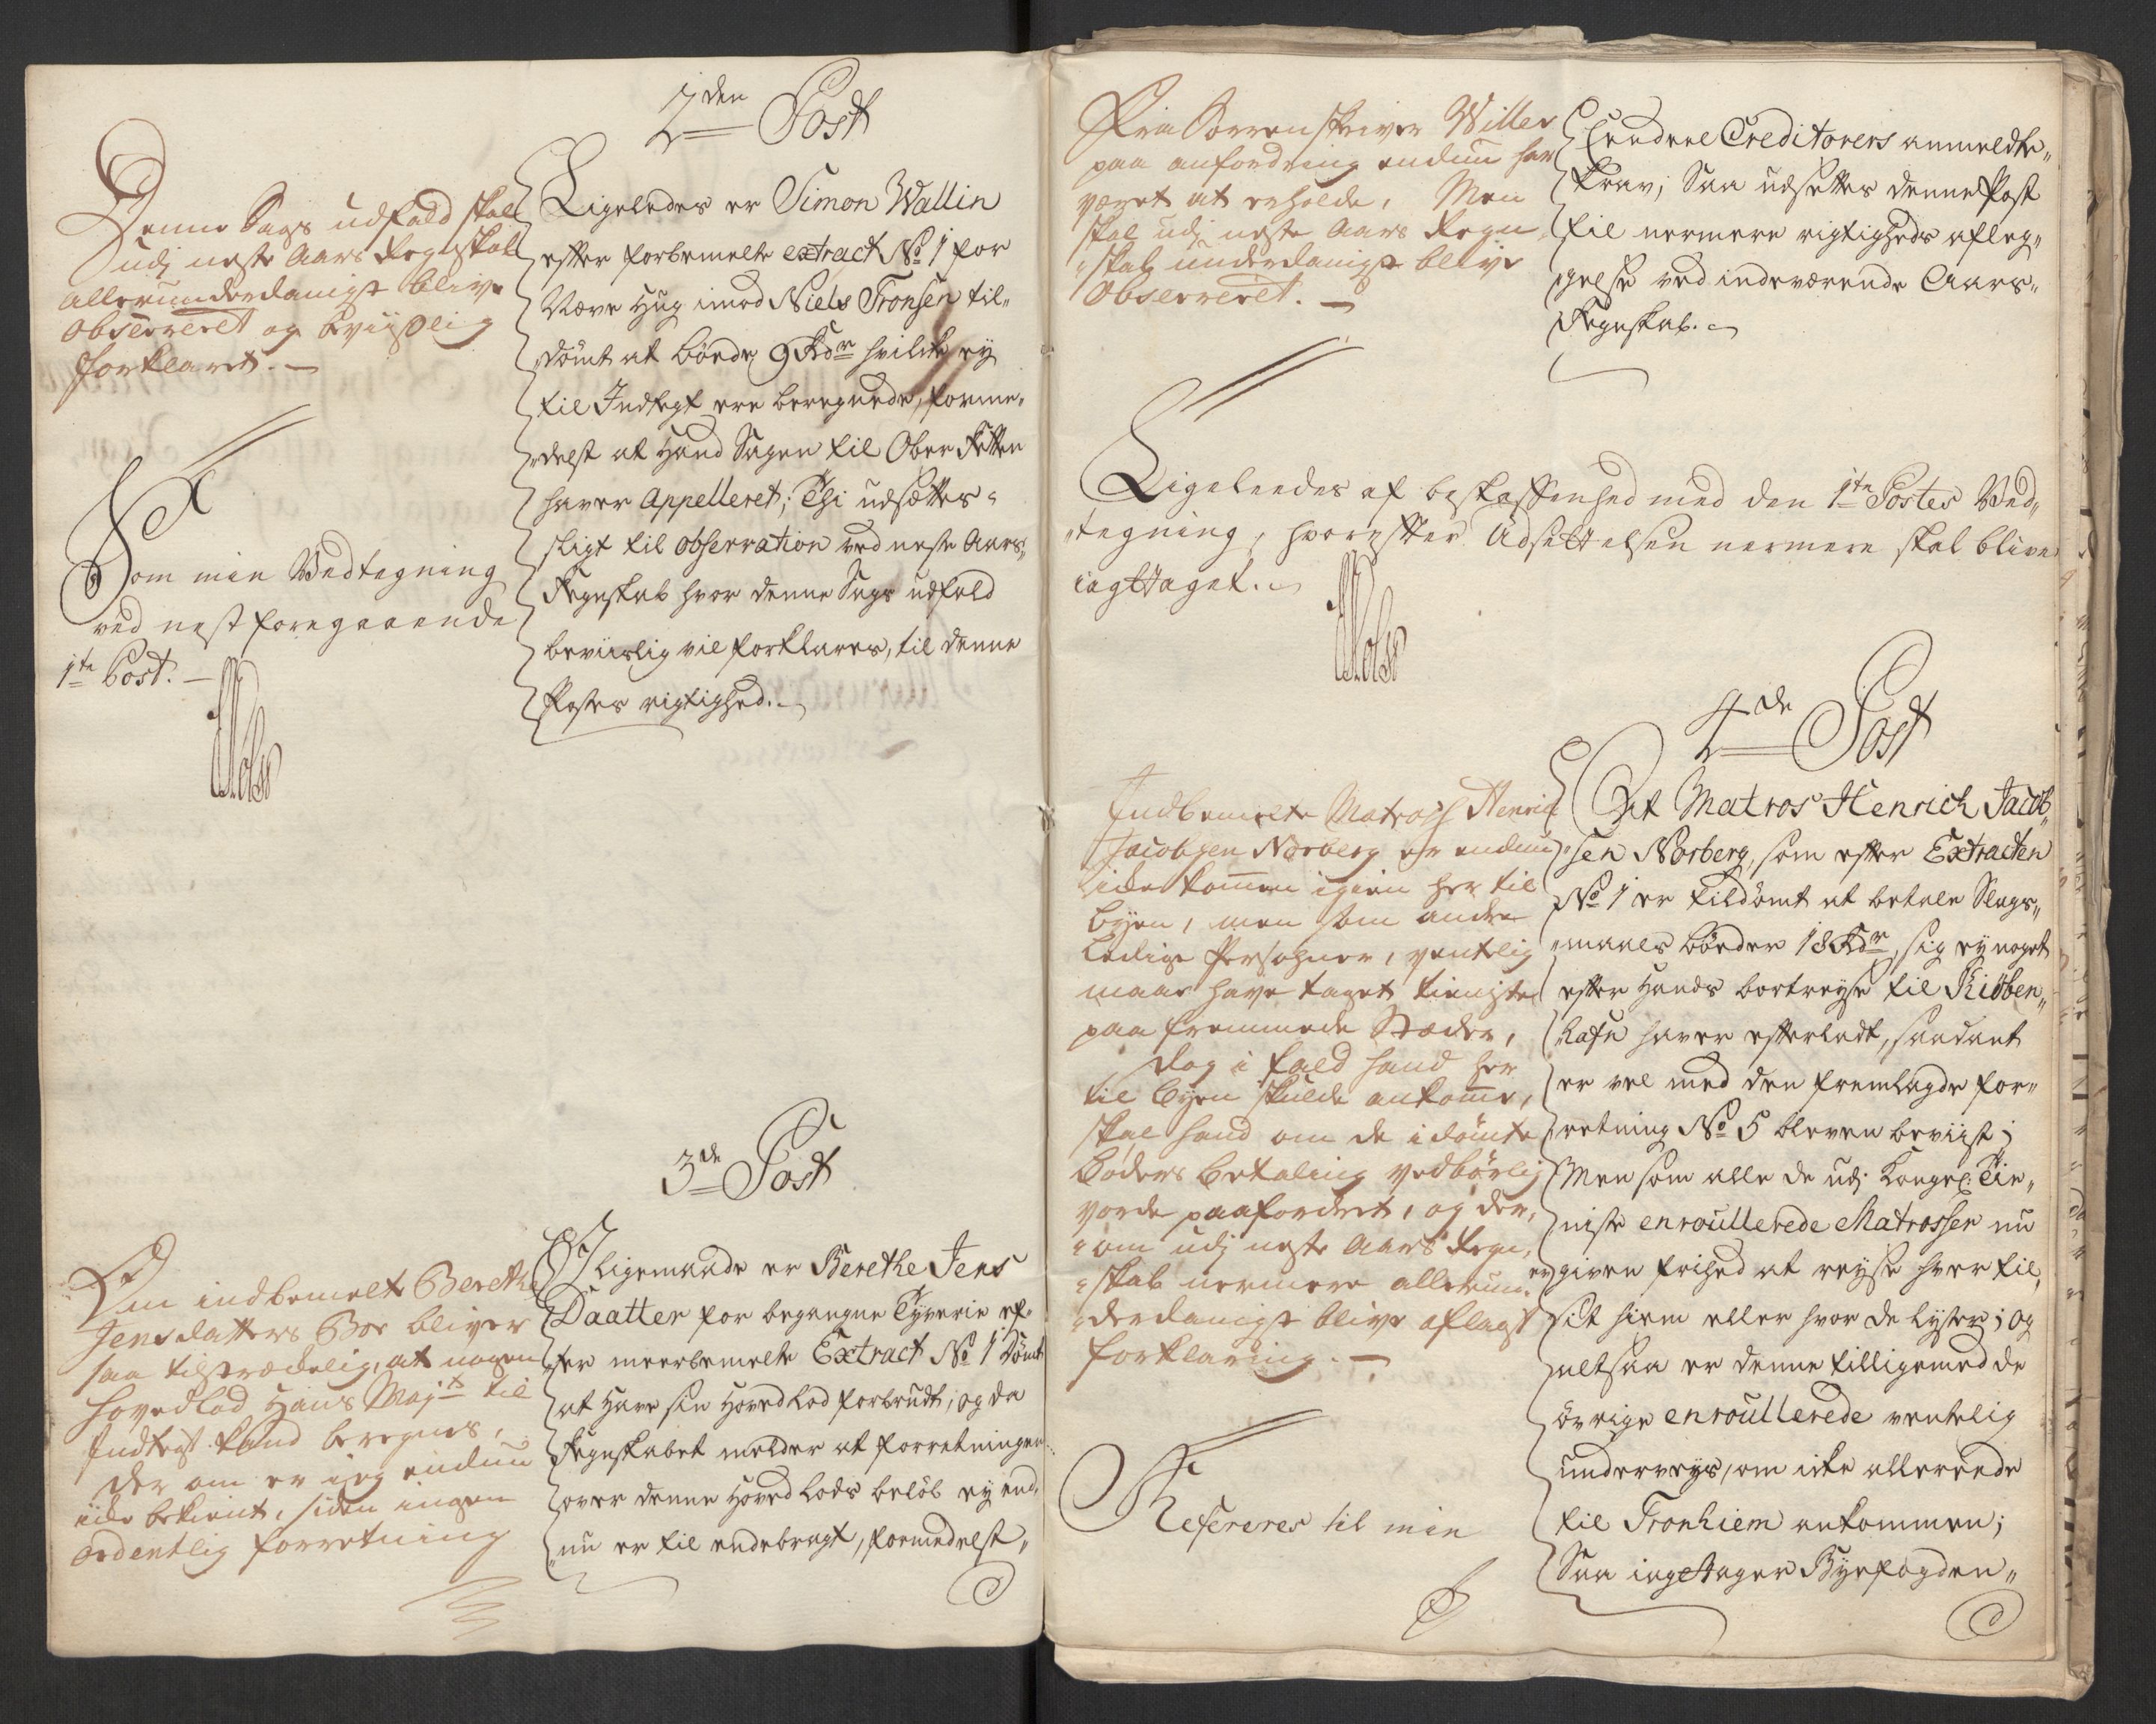 2den Post
Denne Sags udfald skal
udj neste Aars Regnskab
allerunderdanigst blive
observeret og beviislig
forklaret. —
Som min Vedtegning
ved nest foregaaende
1te Post. —
Ligeledes er Simon Wallin
efter forbemelte extract No 1 for
Næve Hug imod Niels Tronsen til„
„dömt at bönde 9 Rdr hvilke ey
til Indtegt ere beregnede, forme„
„delst at Hand Sagen til Ober Retten
haver Appelleret; Thi udsættes
sligt til observation ved neste Aars„
Regnskab hvor denne Sags udfald
beviislig vil forklares, til denne
Postes rigtighed.
3de Post
Om indbemelte Berethe
Jensdatters Boe bliver
saa tilstrækelig, at nogen
hovedlod Hans Mayts til
Indtegt kand beregnes,
der om er ieg endnu
icke bekient, siden ingen
ordentlig forretning
I ligemaade er Berethe Jens
Daatter for begangne Tyverie ef„
ter meerbemelte Extract No 1 Dömt
at Have sin Hoved Lod forbrudt; og da
Regnskabet melder at forretningen
over denne Hoved Lods belöb ey end„
„nu er til endebragt, formedelst„
Fra Sorrenskriver Willer
paa anfordring endnu har
været at erholde, Men
skal udj neste Aars Regn„
„skab underdanigst blive
Observeret. —
Eendeel Creditorers anmeldte„
Krav; Saa udsettes denne Post
til nermere rigtigheds afleg„
gelse ved indeværende Aars„
Regnskab.
Ligeleedes af beskaffenhed med den 1te Postes Ved„
„tegning, hvorefter Udsettelsen nermere skal blive
iagttaget.
4de Post
Indbemelte Matros Henrich
Jacobsen Norberg er endnu
icke kommen igien her til
byen, men som andre
Ledige Persohner, ventelig
maae have taget tieniste
paa fremmede Stæder,
dog i fald hand her
til byen skulde ankomme,
skal hand om de idömte
böders betaling vedbörlig
vorde paafordret, og der„
„om udj neste Aars Regn„
„skab nermere allerun„
„derdanigst blive aflagt
forklaring. —
Refereres til min
At Matros Henrich Jacob„
„sen Norberg, som efter Extracten
No 1 er tildömt at betale Slags„
„maals böder 18 Rdr, sig ey noget
efter Hands bortreyse til Kiöben„
„hafn haver efterladt, saadant
er vel med den fremlagde for„
„retning No 5 bleven beviist;
Men som alle de udj Kongel: Tie„
niste enroullerede Matrosser nu
er given frihed at reyse hver til
sit hiem eller hvor de lyster; og
altsaa er denne tilligemed de
övrige enroullerede ventelig
underveys, om icke allereede
til Tronhiem ankommen;
Saa iagttager Byefogden„